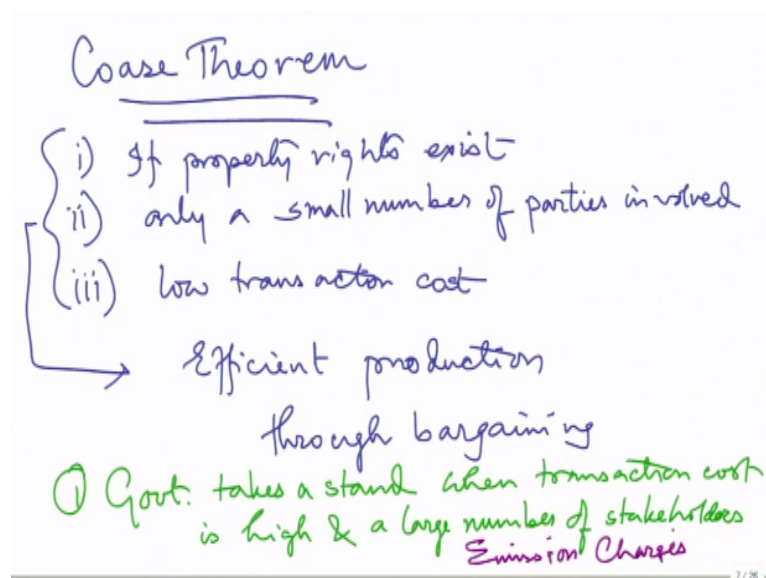 Coase Theorem
i) If property rights exist
ii) only a small number of parties involved
iii) low transacton cost
Efficient production
through bargaining
① Govt. takes a stand when transaction cost
is high & a large number of stakeholders
Emission Charges
7 / 26